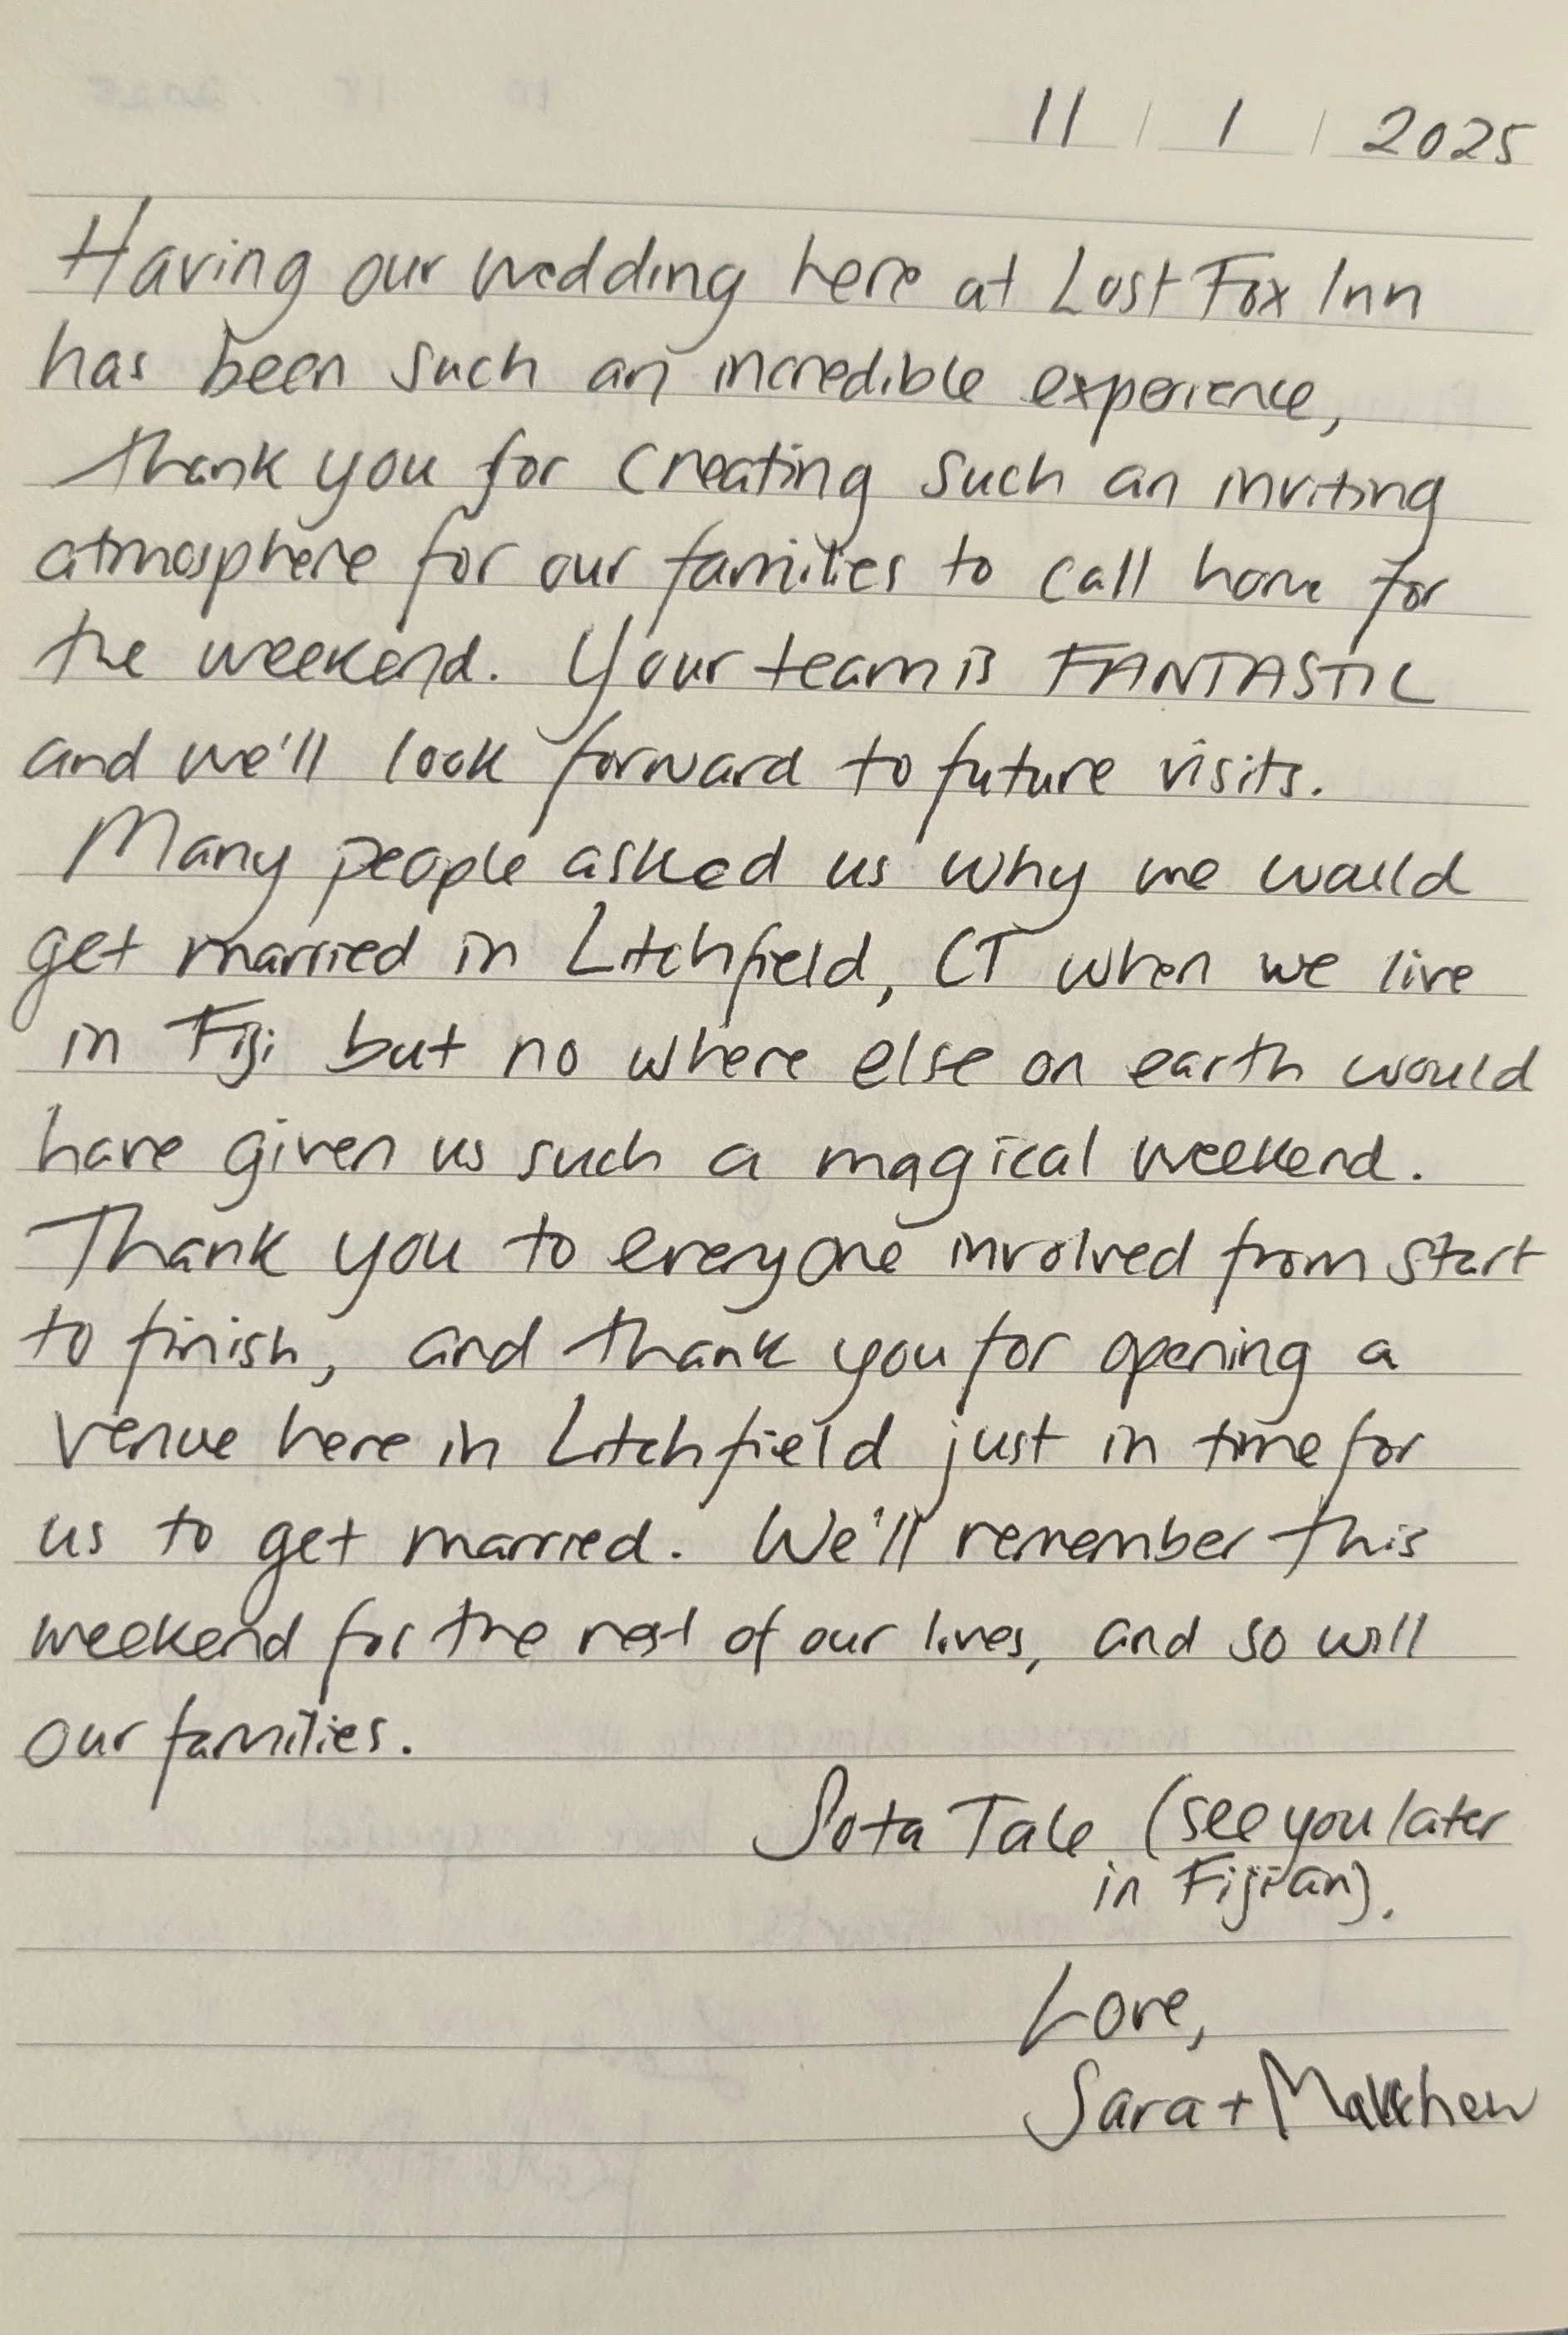 11 / 1 / 2025
Having our wedding here at Lost Fox Inn
has been such an incredible experience,
thank you for creating such an inviting
atmosphere for our families to call home for
the weekend. Your team is FANTASTIC
and we'll look forward to future visits.
Many people asked us why we would
get married in Litchfield, CT when we live
in Fiji but no where else on earth would
have given us such a magical weekend.
Thank you to everyone involved from start
to finish, and thank you for opening a
venue here in Litchfield just in time for
us to get married. We'll remember this
weekend for the rest of our lives, and so will
our families.
Sota Tale (see you later
in Fijian).
Love,
Sara + Matthew